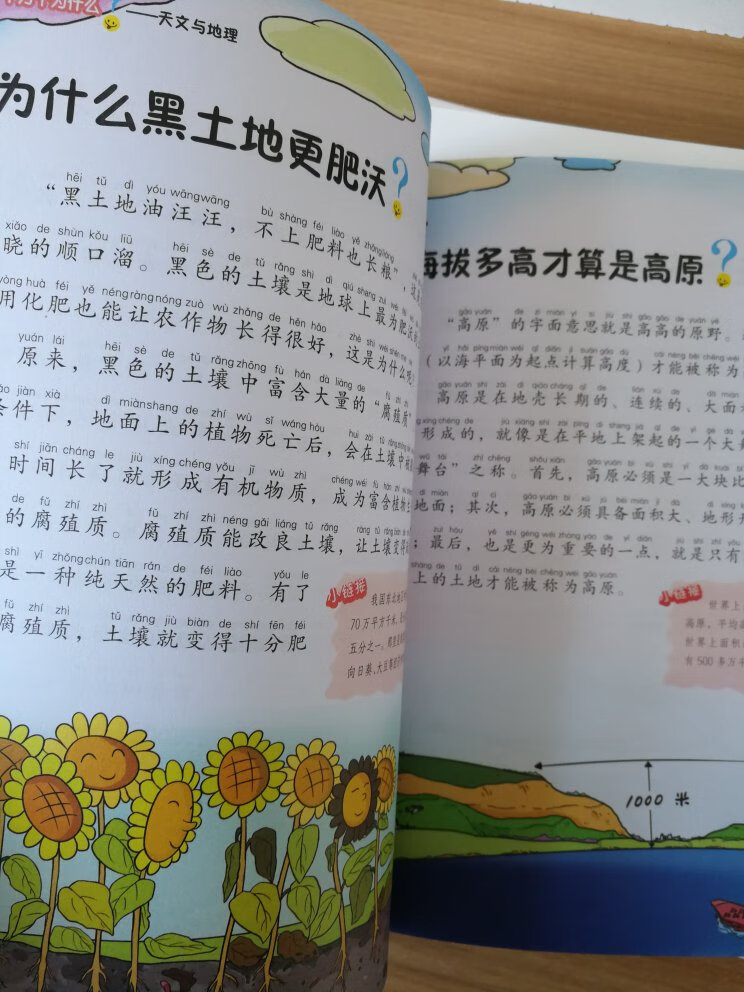 万个为什么?
——天文与地理
为什么黑土地更肥沃?
hēi tǔ dì yóu wāngwāng bù shàng féi liào yě zhǎngliáng
“黑土地油汪汪，不上肥料也长粮”，
xiǎo de shùn kǒu liū hēi sè de tǔ rǎng shì dì qiú shang zuì wéi féi
晓的顺口溜。黑色的土壤是地球上最为肥沃
yòng huà féi yě néng ràng nóng zuò wù zhǎng de hěn hǎo zhè shì wèi shén me
用化肥也能让农作物长得很好，这是为什么呢
yuán lái hēi sè de tǔ rǎng zhōng fù hán dà liàng de fǔ zhí
原来，黑色的土壤中富含大量的“腐殖质”
tiáo jiàn xià dì miàn shang de zhí wù sǐ wáng hòu huì zài tǔ rǎng zhōng
条件下，地面上的植物死亡后，会在土壤中
shí jiān cháng le jiù xíng chéng yǒu jī wù zhì chéng wéi fù hán zhí wù
时间长了就形成有机物质，成为富含植物
de fǔ zhí zhì fǔ zhí zhì néng gǎi liáng tǔ rǎng ràng tǔ rǎng biàn de
的腐殖质。腐殖质能改良土壤，让土壤变得
shì yì zhǒng chún tiān rán de féi liào yǒu le
是一种纯天然的肥料。有了
fǔ zhí zhì tǔ rǎng jiù biàn de shí fēn féi
腐殖质，土壤就变得十分肥
小链接
我国东北地区
70万平方千米，
五分之一。
向日葵、大豆
海拔多高才算是高原?
gāo yuán de zì miàn yì si jiù shì gāo gāo de yuán yě
“高原”的字面意思就是高高的原野。
yǐ hǎi píng miàn wéi qǐ diǎn jì suàn gāo dù cái néng bèi chēng wéi
（以海平面为起点计算高度）才能被称为
gāo yuán shì zài dì qiào cháng qī de lián xù de dà miàn
高原是在地壳长期的、连续的、大面
xíng chéng de jiù xiàng shì zài píng dì shang jià qǐ de yí gè dà
形成的，就像是在平地上架起的一个大
wǔ tái zhī chēng shǒu xiān gāo yuán bì xū shì yí dà kuài bǐ
舞台”之称。首先，高原必须是一大块比
dì miàn qí cì gāo yuán bì xū jù bèi miàn jī dà dì xíng
地面；其次，高原必须具备面积大、地形
zuì hòu yě shì gèng wéi zhòng yào de yì diǎn jiù shì zhǐ yǒu
；最后，也是更为重要的一点，就是只有
shàng de tǔ dì cái néng bèi chēng wéi gāo yuán
上的土地才能被称为高原。
小链接
世界上
高原，平均
世界上面积
有500多万平
1000米